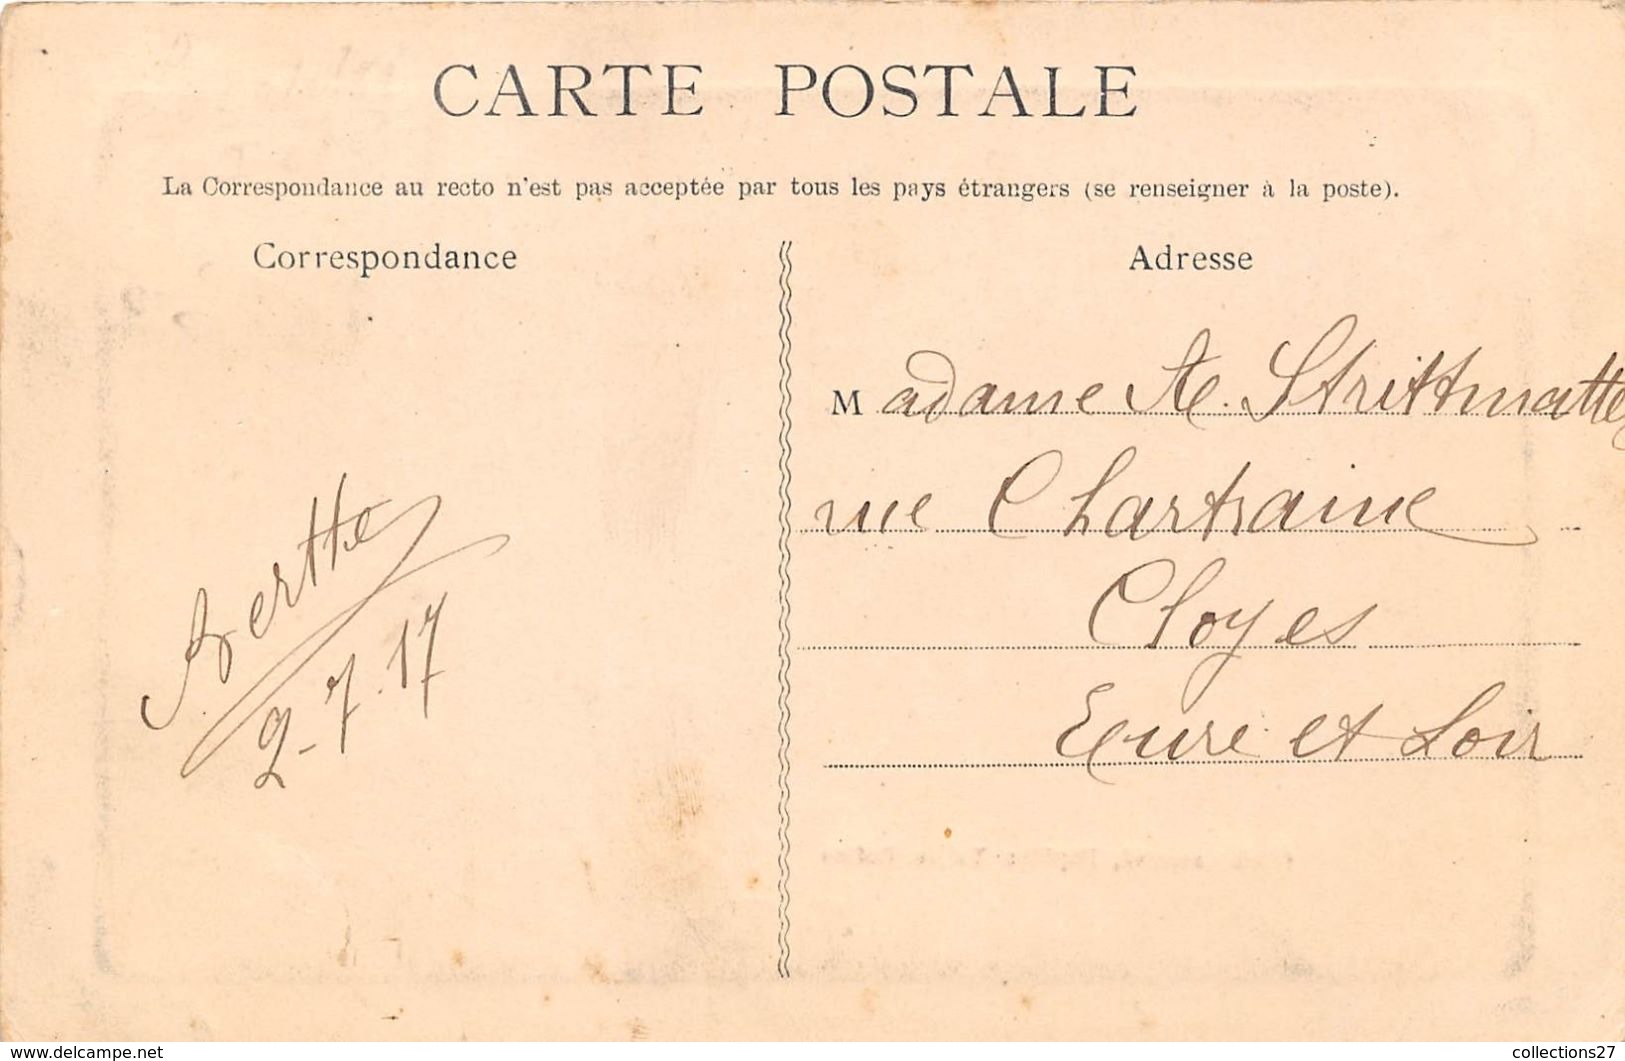 CARTE POSTALE
La Correspondance au recto n'est pas acceptée par tous les pays étrangers (se renseigner à la poste).
Correspondance
Adresse
Madame A. Strittmatter
rue Chartraine
Cloyes
Eure et Loir
Berthe
2-7-17
www.delcampe.net
collections27